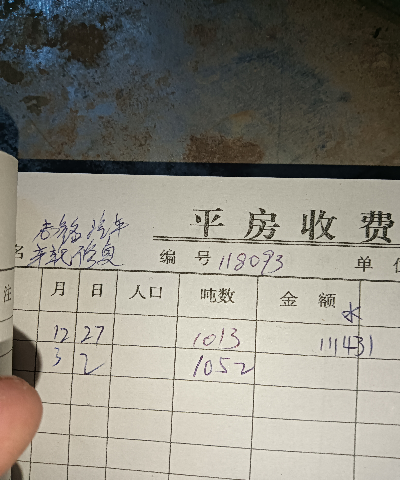 平房收费
名 老铭汽车
车轮修复 编号 118093 单位
注 月 日 人口 吨数 金额
水
12 27 1013 111431
3 2 1052